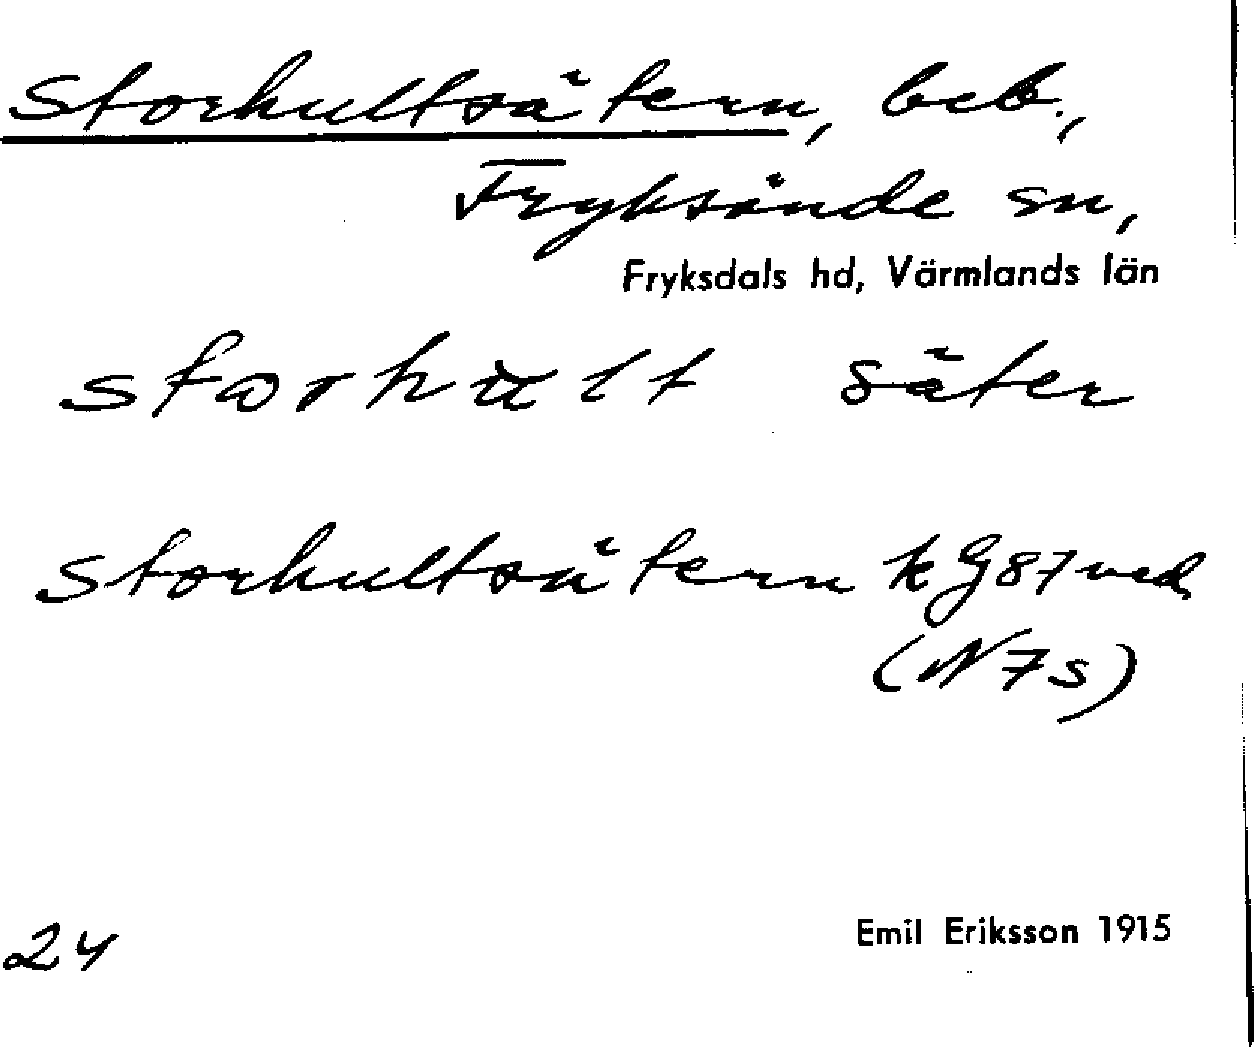 Storhultsätern, beb.,
Fryksände sn,
Fryksdals hd, Värmlands län
storhult säter
Storhultsätern k G87 ved.
(N7s)
24
Emil Eriksson 1915